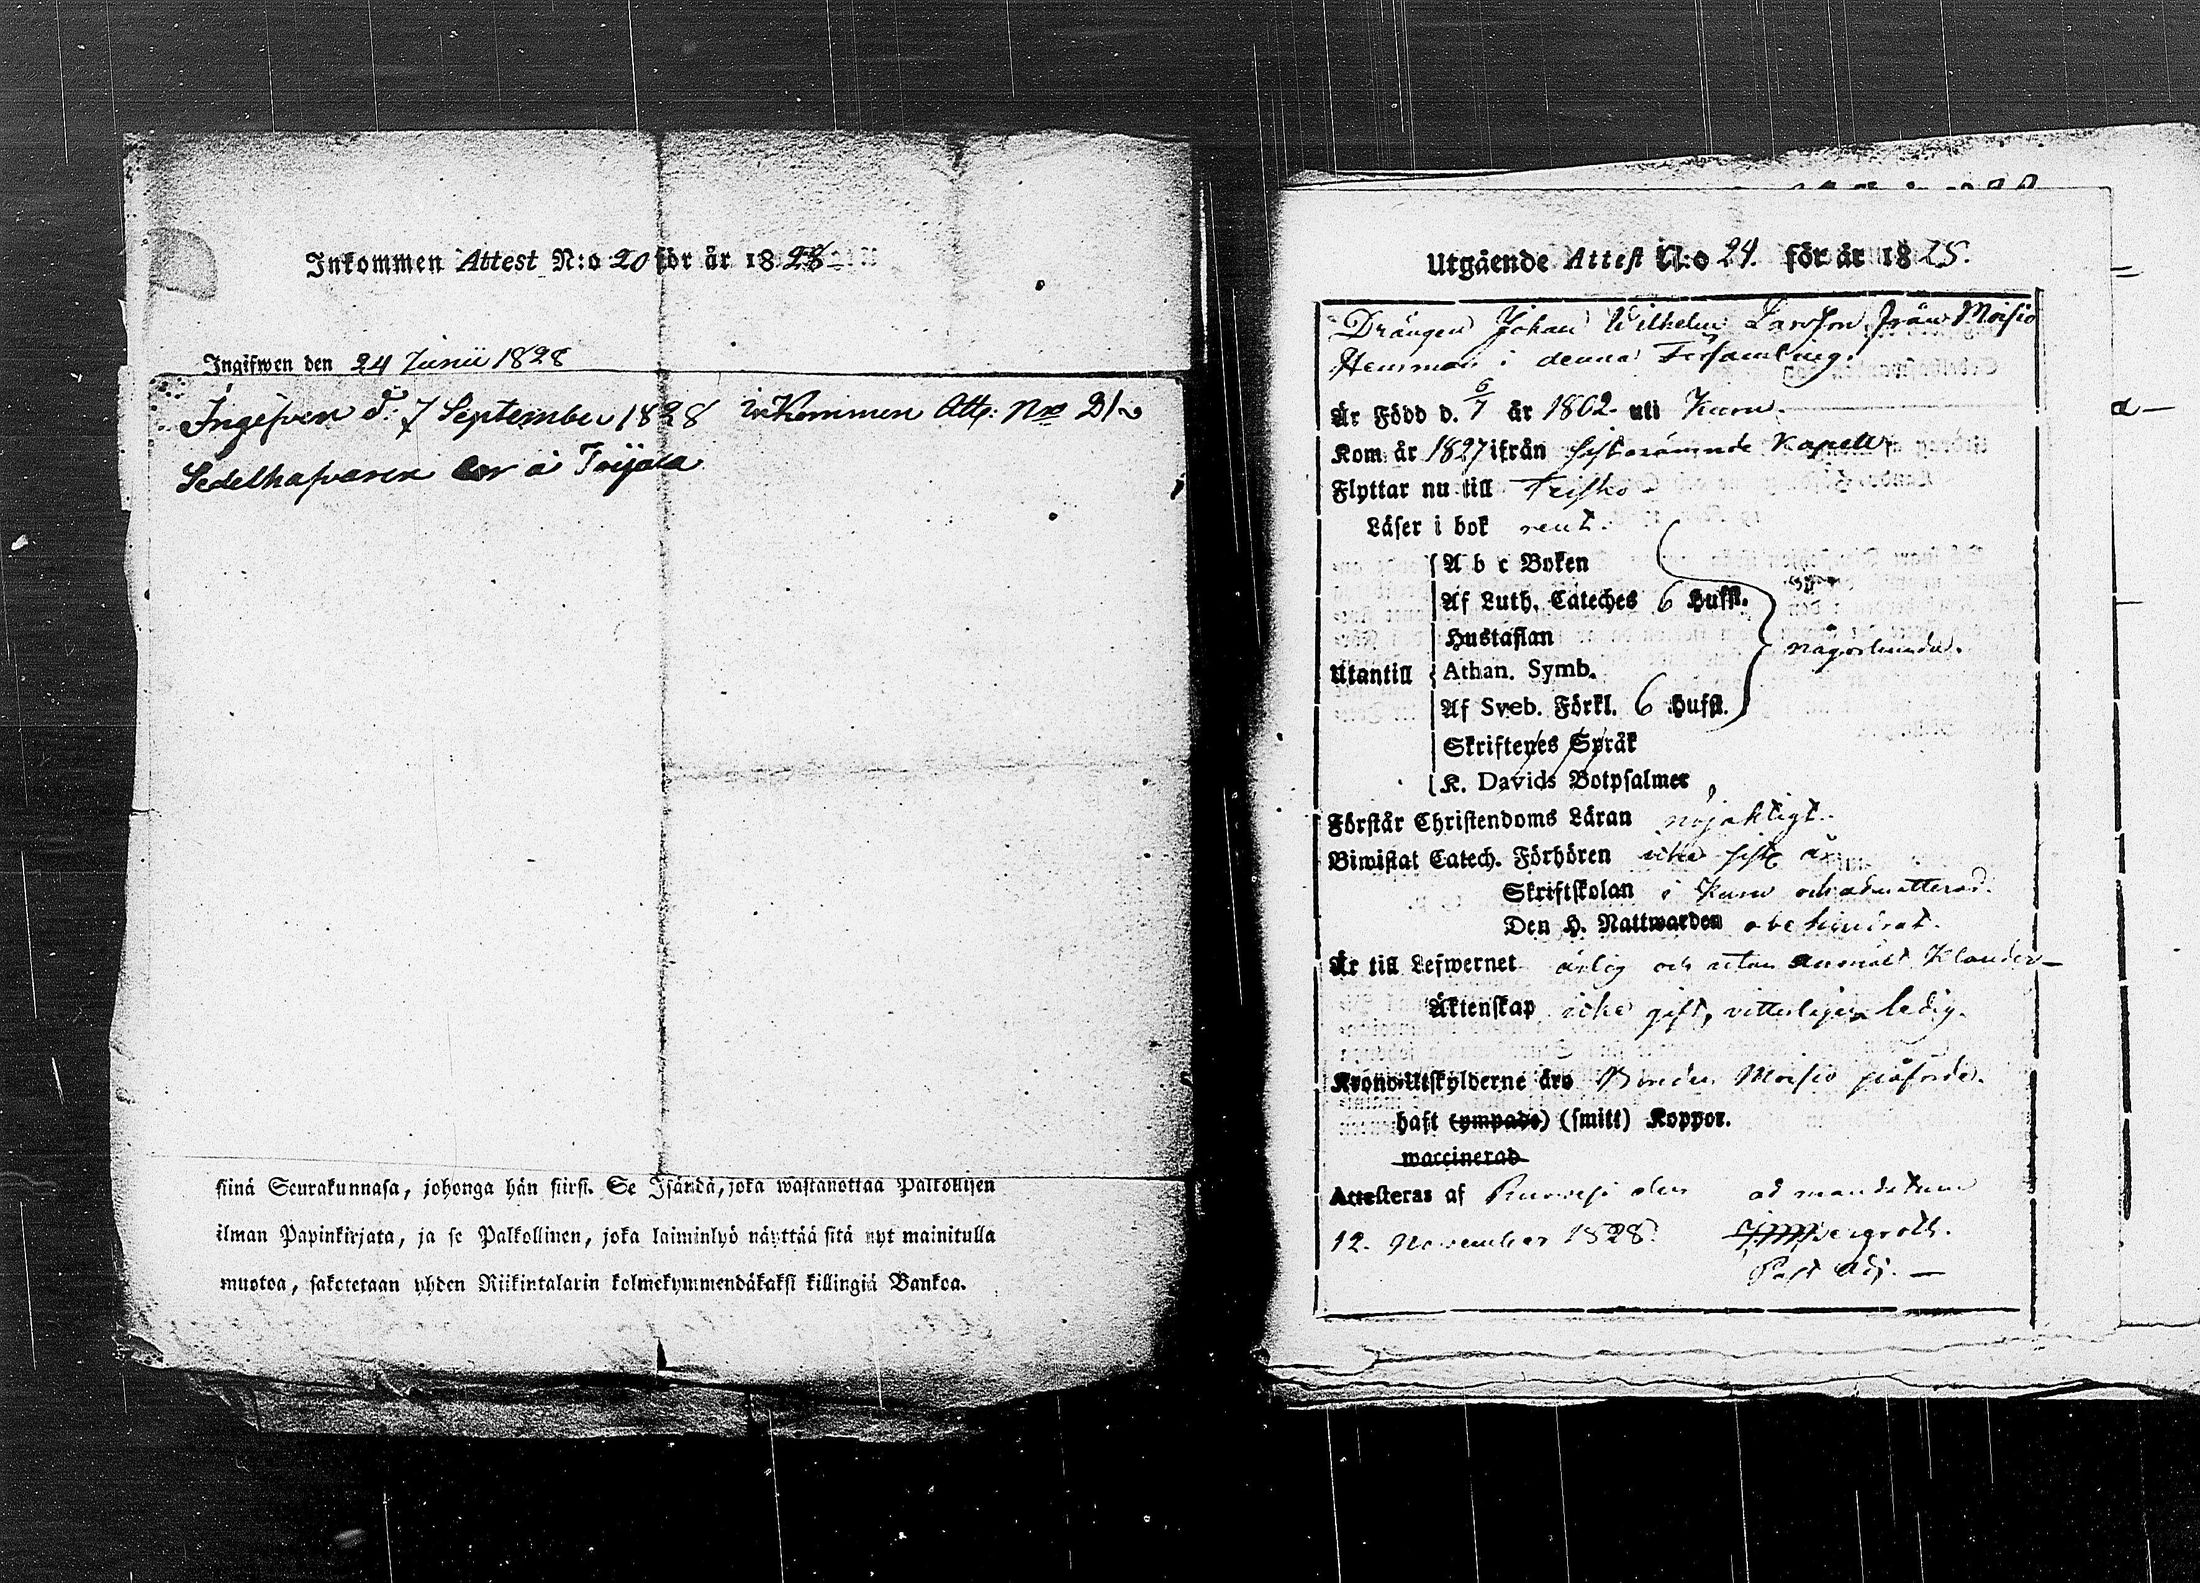 Inkommen Attest N:o 20 för år 1828
Ingifwen den 24 Junii 1828
Ingifven d. 7 September 1828 inkommen Att: Nro
Sedelhafvaren är å
siinä Seurakunnasa, johonga hän siirsi. Se Isändä, joka wastanottaa Palkollisen
ilman Papinkirjata, ja se Palkollinen, joka laiminlyö näyttää sitä nyt mainitulla
muotoa, sakotetaan yhden Riikintalarin kolmekymmendäkaksi killingiä Bankoa.
Utgående Attest N:o 24. för år 18
Drängen Johan Wilhelm Larsson från Moisio
Hemman i denna Församling.
Är Född d. 6/7 år 1802 uti Kuru.
Kom år 1827 ifrån sistnämnde Kapell
Flyttar nu till
Läser i bok rent.
A b c Boken
Af Luth. Cateches 6 Hufst.
Hustaflan
Utantill Athan. Symb. någorlunda.
Af Sveb. Förkl. 6 Hufst.
Skriftenes Språk
K. Davids Botpsalmer
Förstår Christendoms Läran nöjaktigt.
Biwistat Catech. Förhören icke sist år
Skriftskolan i Kuru och admitterad.
Den H. Nattwarden obehindrat.
Är till Lefwernet ärlig och utan anmält klander
Äktenskap icke gift, vitterligen ledig.
Krono-Utskylderne äro Bonden Moisio påförde.
haft (ympade) (smitt) Koppor.
waccinerad
Attesteras af Ruovesi den ad mandatum
12. November 1828.
Past Adj.